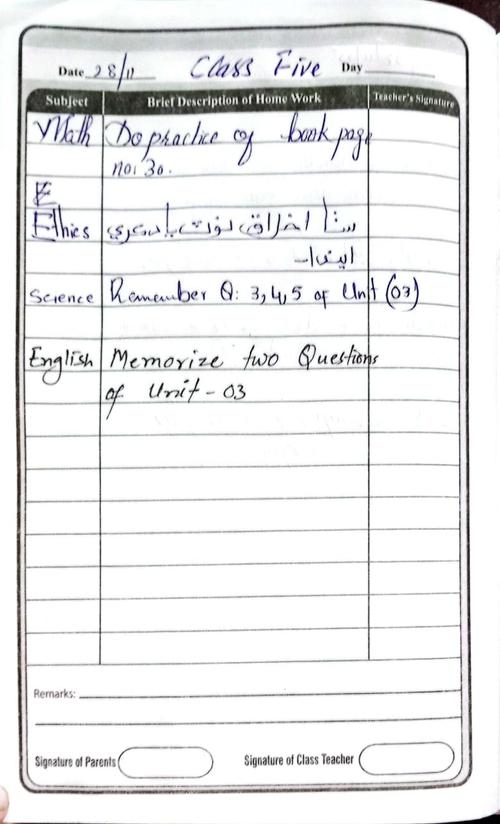 Date 28/11 Class Five Day
Subject Brief Description of Home Work Teacher's Signature
Math Do practice of book page
no: 30.
E
Ethics اخلاق نوٽ
ايندا۔
Science Ramember Q: 3,4,5 of Unit (03)
English Memorize two Questions
of Unit - 03
Remarks:
Signature of Parents Signature of Class Teacher